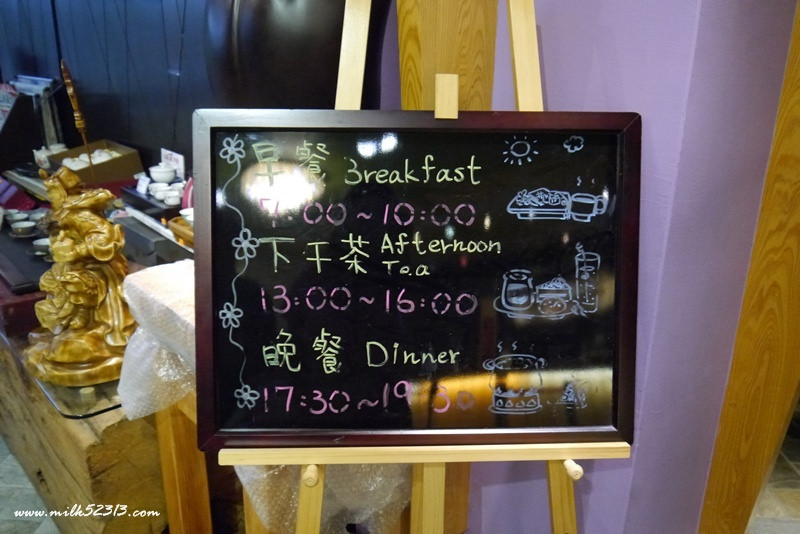 早餐 Breakfast
7:00~10:00
下午茶 Afternoon Tea
13:00~16:00
晚餐 Dinner
17:30~19:30
www.milk52313.com